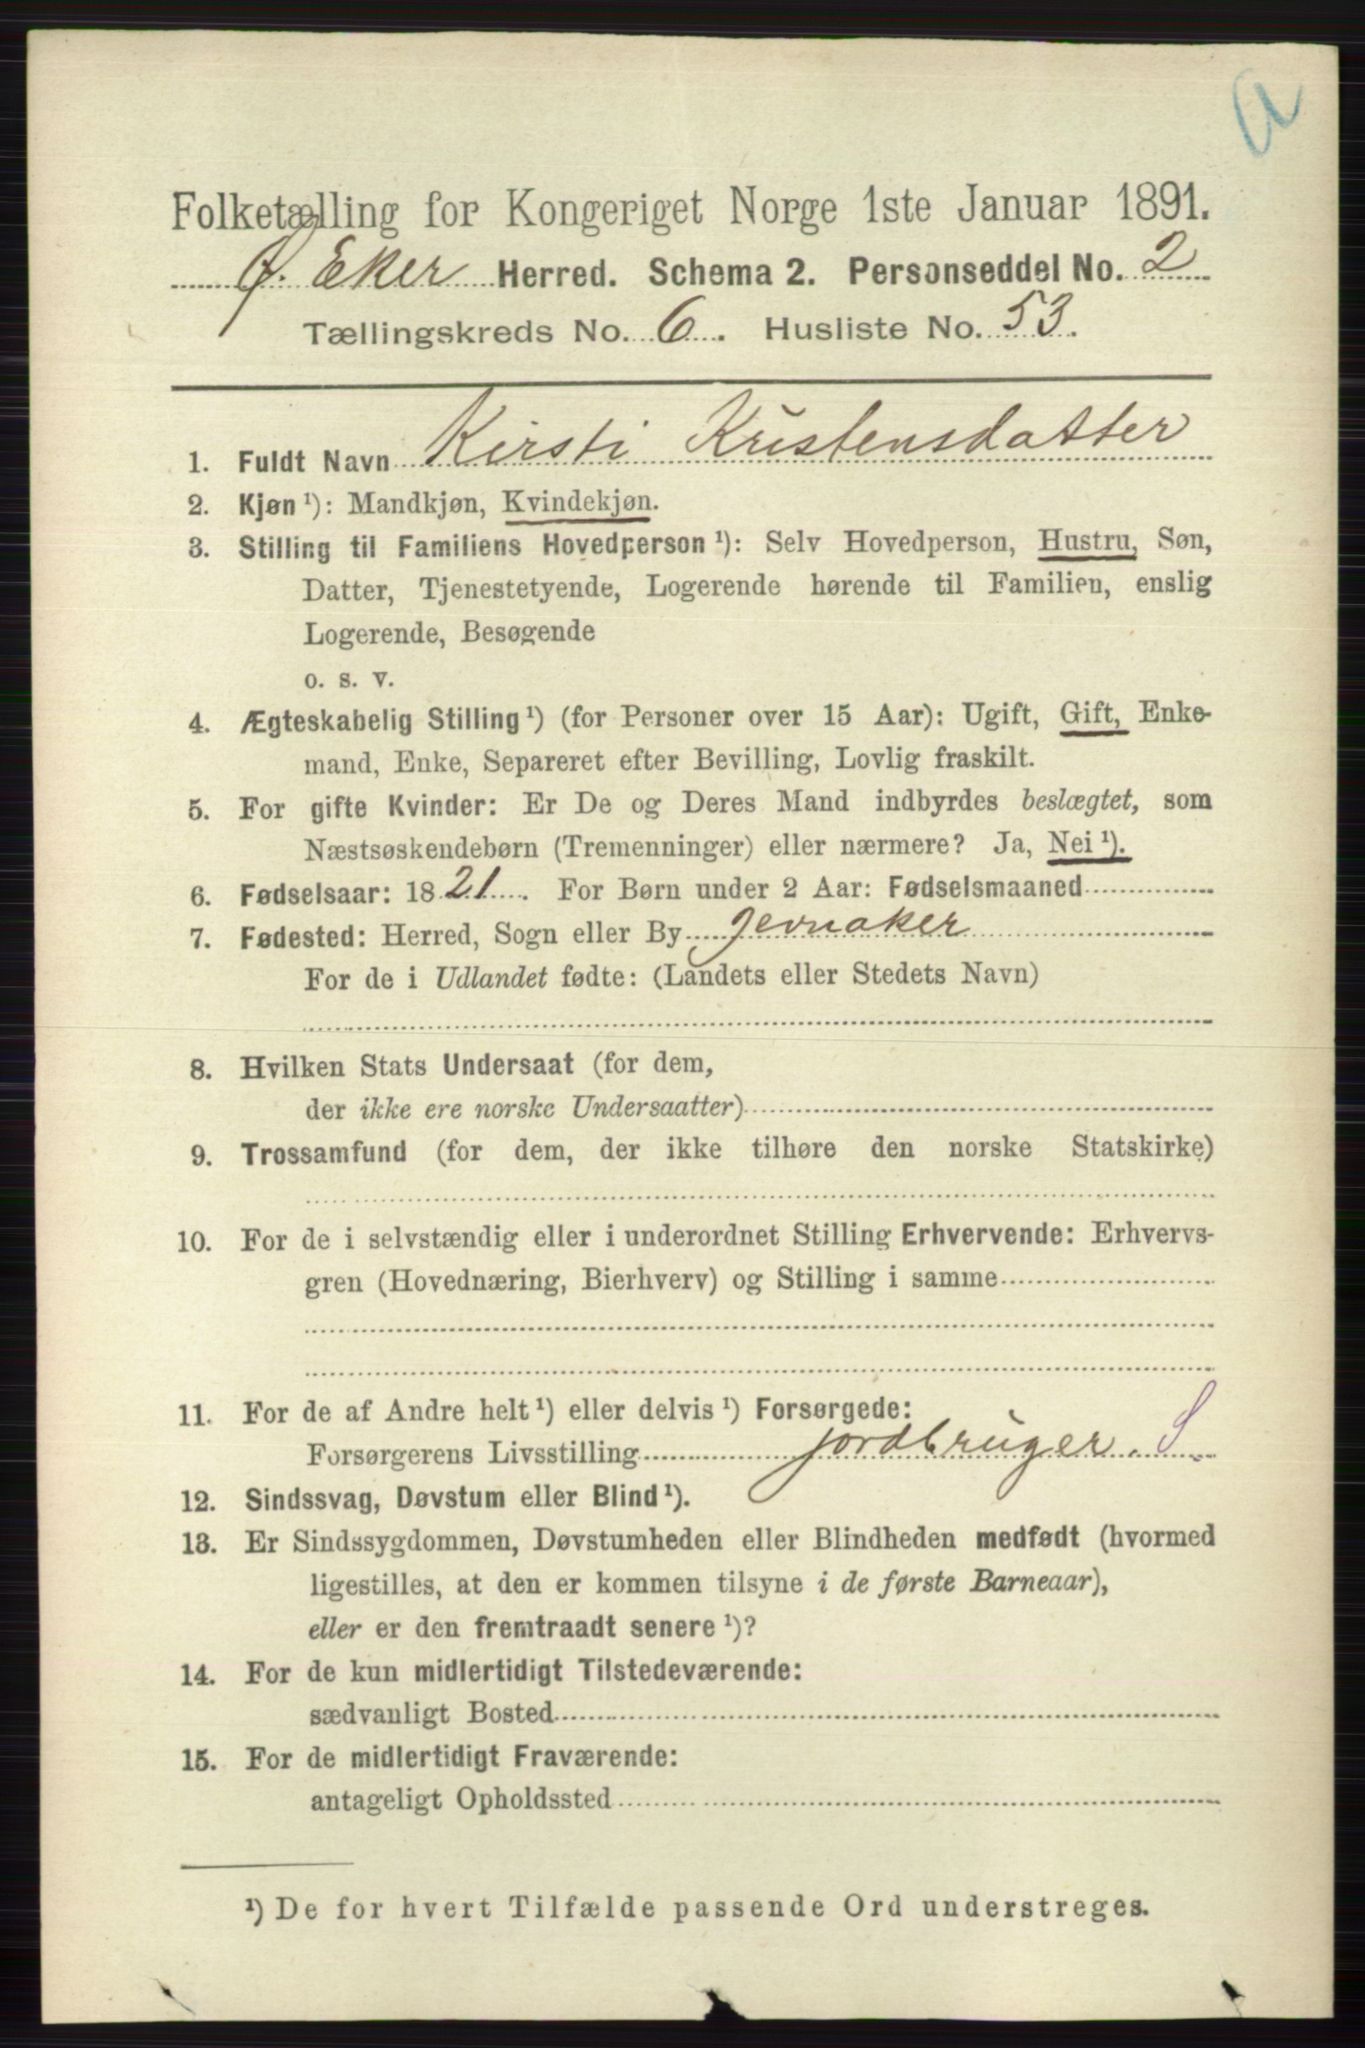 a
Folketælling for Kongeriget Norge 1ste Januar 1891.
Ø. Eker Herred. Schema 2. Personseddel No. 2
Tællingskreds No. 6. Husliste No. 53.
1. Fuldt Navn Kirsti Kristensdatter
2. Kjøn ¹): Mandkjøn, Kvindekjøn.
3. Stilling til Familiens Hovedperson ¹): Selv Hovedperson, Hustru, Søn,
Datter, Tjenestetyende, Logerende hørende til Familien, enslig
Logerende, Besøgende
o. s. v.
4. Ægteskabelig Stilling ¹) (for Personer over 15 Aar): Ugift, Gift, Enke-
mand, Enke, Separeret efter Bevilling, Lovlig fraskilt.
5. For gifte Kvinder: Er De og Deres Mand indbyrdes beslægtet, som
Næstsøskendebørn (Tremenninger) eller nærmere? Ja, Nei ¹).
6. Fødselsaar: 1821. For Børn under 2 Aar: Fødselsmaaned
7. Fødested: Herred, Sogn eller By Jevnaker
For de i Udlandet fødte: (Landets eller Stedets Navn)
8. Hvilken Stats Undersaat (for dem,
der ikke ere norske Undersaatter)
9. Trossamfund (for dem, der ikke tilhøre den norske Statskirke)
10. For de i selvstændig eller i underordnet Stilling Erhvervende: Erhvervs-
gren (Hovednæring, Bierhverv) og Stilling i samme
11. For de af Andre helt ¹) eller delvis ¹) Forsørgede:
Forsørgerens Livsstilling jordbruger. S
12. Sindssvag, Døvstum eller Blind ¹).
13. Er Sindssygdommen, Døvstumheden eller Blindheden medfødt (hvormed
ligestilles, at den er kommen tilsyne i de første Barneaar),
eller er den fremtraadt senere ¹)?
14. For de kun midlertidigt Tilstedeværende:
sædvanligt Bosted
15. For de midlertidigt Fraværende:
antageligt Opholdssted
¹) De for hvert Tilfælde passende Ord understreges.